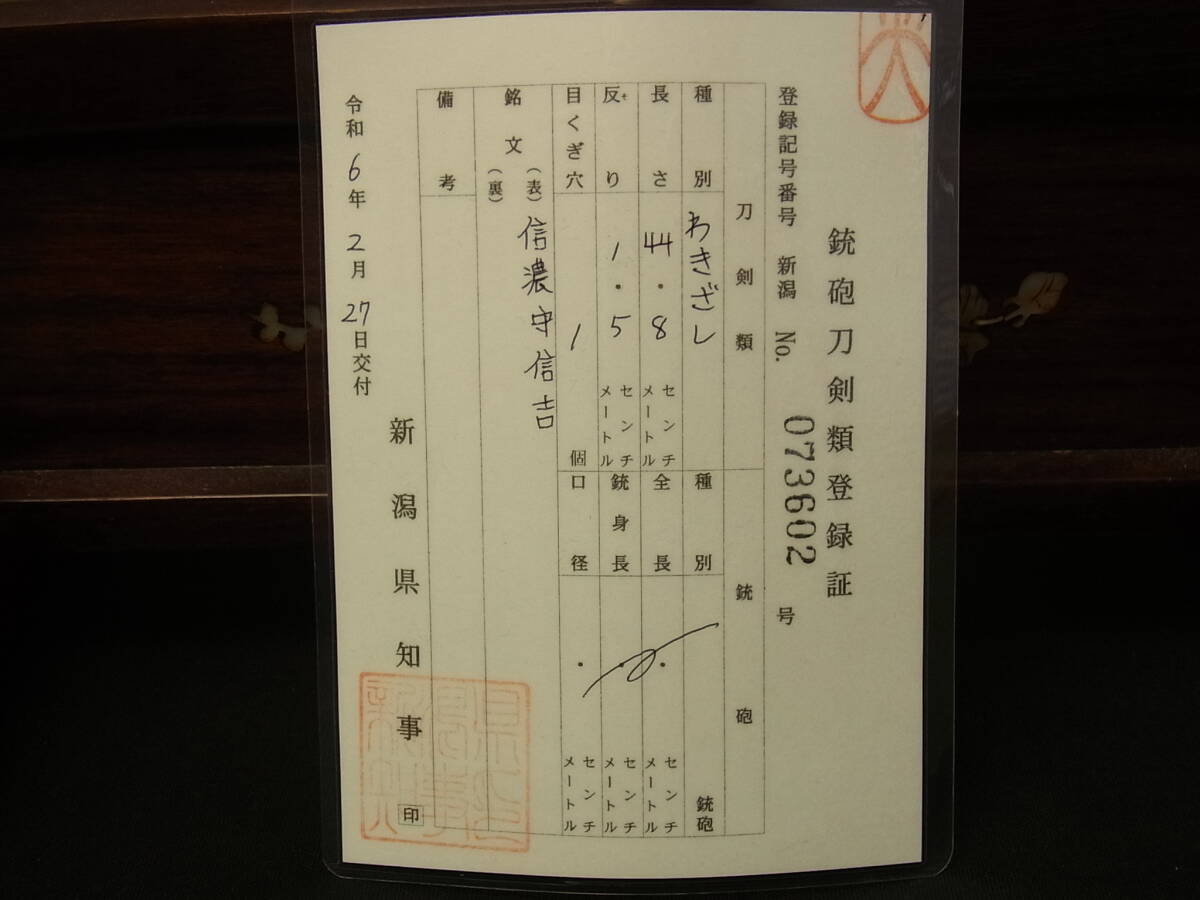 銃砲刀剣類登録証
登録記号番号 新潟 No. 073602 号
刀剣類
種別 わきざし
長さ 44.8 センチメートル
反り 1.5 センチメートル
そ
目くぎ穴 1 個
銃砲
種別 銃砲
全長 . センチメートル
銃身長 . センチメートル
口径 . センチメートル
銘文 (表) 信濃守信吉
(裏)
備考
令和6年2月27日交付
新潟県知事 印